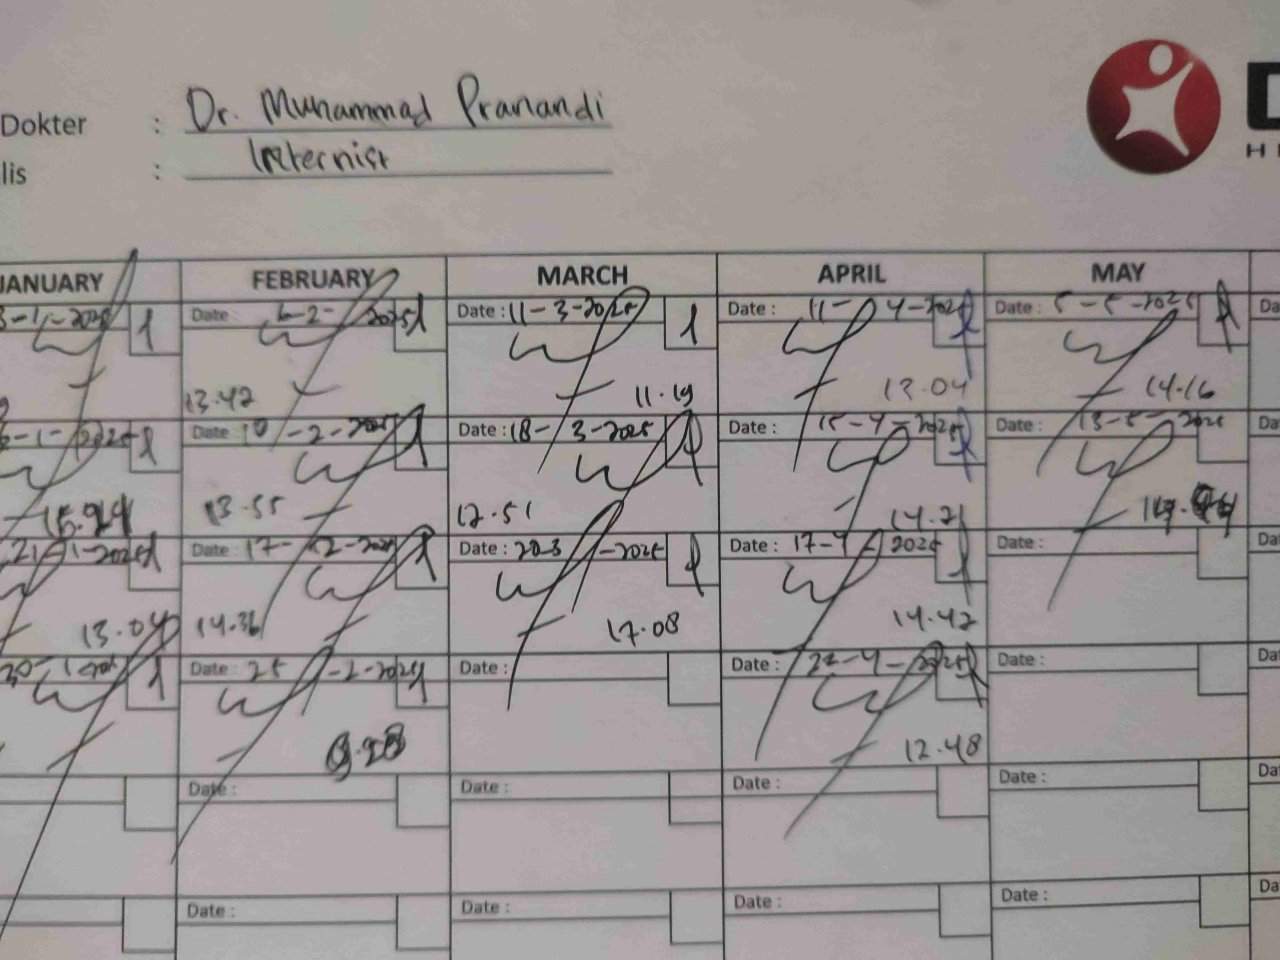 Dokter : Dr. Muhammad Pranandi
lis : Internist
D
H
JANUARY FEBRUARY MARCH APRIL MAY
3-1-2025 1 Date : 6-2-2025 1 Date : 11-3-2025 1 Date : 11-4-2025 1 Date : 5-5-2025 1 Da
13.42 11.19 13.04 14.16
-1-2025 1 Date : 10-2-2025 1 Date : 18-3-2025 1 Date : 15-4-2025 1 Date : 13-5-2025 Da
13.55 12.51 14.21
21-1-2025 1 Date : 17-2-2025 1 Date : 20-3-2025 1 Date : 17-4-2025 1 Date : Da
13.04 14.36 17.08 14.42
30-1-2025 1 Date : 25-2-2025 1 Date : Date : 22-4-2025 1 Date : Da
12.48
Date : Date : Date : Date : Da
Date : Date : Date : Date : Da